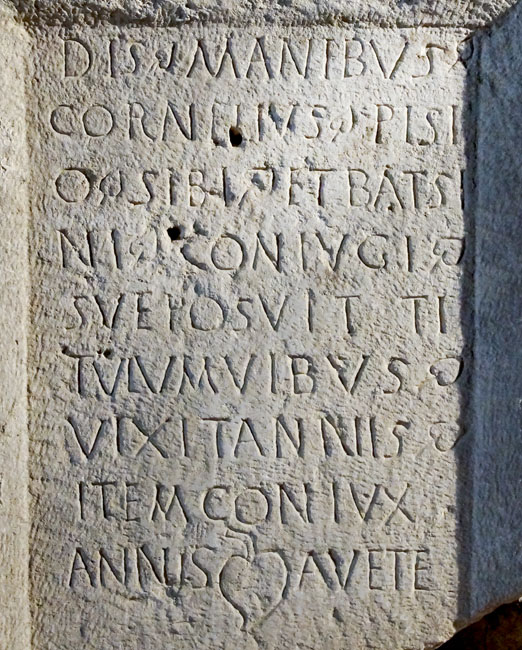 DIS MANIBVS
CORNELIVS PISI
O SIBI ET BATSI
NI CONIVGI
SVE POSVIT TI
TVLVM VIBVS
VIXIT ANNIS
ITEM CONIVX
ANNIS AVETE